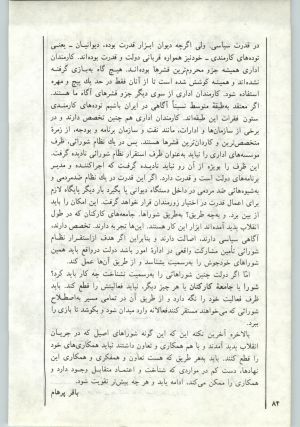 در قدرت سیاسی. ولی اگرچه دیوان ابزار قدرت بوده، دیوانیان ـ یعنی
توده‌های کارمندی ـ خودنیز همواره قربانی دولت و قدرت بوده‌اند. کارمندان
اداری همیشه جزو محروم‌ترین قشرها بوده‌اند. هیچ گاه به‌بازی گرفته
نشده‌اند و همیشه کوشش شده است تا از آنان فقط در حد یك پیچ و مهره
استفاده شود. کارمندان اداری از سوی دیگر جزو قشرهای آگاه ما هستند.
اگر معتقد به‌طبقه متوسط نسبتاً آگاهی در ایران باشیم توده‌های کارمندی
ستون فقرات این طبقه‌اند. کارمندان اداری هم چنین تخصص دارند و در
برخی از سازمان‌ها و ادارات، مانند نفت و سازمان برنامه و بودجه، از زمرهٔ
متخصص‌ترین و کاردان‌ترین قشرها هستند. پس در یك نظام شورائی، ظرف
موسسه‌های اداری را نباید به‌عنوان ظرف استقرار نظام شورائی نادیده گرفت.
این ظرف را بویژه از آن رو نباید نادیده گرفت که اجراکننده و مدیر
برنامه‌های دولت است و قدرت دارد. اگر این قدرت در یك نظام ضدمردمی و
به‌شیوه‌هائی ضد مردمی در داخل دستگاه دیوانی پا بگیرد بار دیگر پایگاه لازم
برای اعمال قدرت در اختیار زورمندان قرار خواهد گرفت. این امکان را باید
از بین برد. و به‌چه طریق؟ به‌طریق شوراها. جامعه‌های کارکنان که در طول
انقلاب پدید آمده‌اند ابزار این کار هستند. این‌ها تجربه دارند، تخصص دارند،
آگاهی سیاسی دارند، اصالت دارند و بنابراین اگر هدف ازاستقرار نظام
شورائی تأمین مشارکت واقعی در ادارهٔ امور باشد دولت درواقع باید همین
شوراهای خودجوش را به‌رسمیت بشناسد و از طریق آن‌ها عمل کند.
امّا اگر دولت جنین شوراهائی را به‌رسمیت نشناخت چه کار باید کرد؟
شورا یا جامعهٔ کارکنان یا هر چیز دیگر، نباید فعالیتش را قطع کند. باید
ظرف فعالیت خود را نگه دارد و از طریق آن در تمامی مسیر به‌اصطلاح
شورائی که می‌خواهند مستقر کنندفعالانه وارد میدان شود و بکوشد تا بازی را
ببرد.
بالاخره آخرین نکته این که این گونه شوراهای اصیل که در جریان
انقلاب پدید آمدند و با هم همکاری و تعاون داشتند نباید همکاری‌های خود
را قطع کنند. باید به‌هر طریق که هست تعاون و همفکری و همکاری این
نهادها، دست کم در مواردی که شناخت و اعتماد متقابل وجود دارد و
همکاری را ممکن می‌کند، ادامه یابد و هر چه بیش‌تر تقویت شود.
باقر پرهام
۸۲